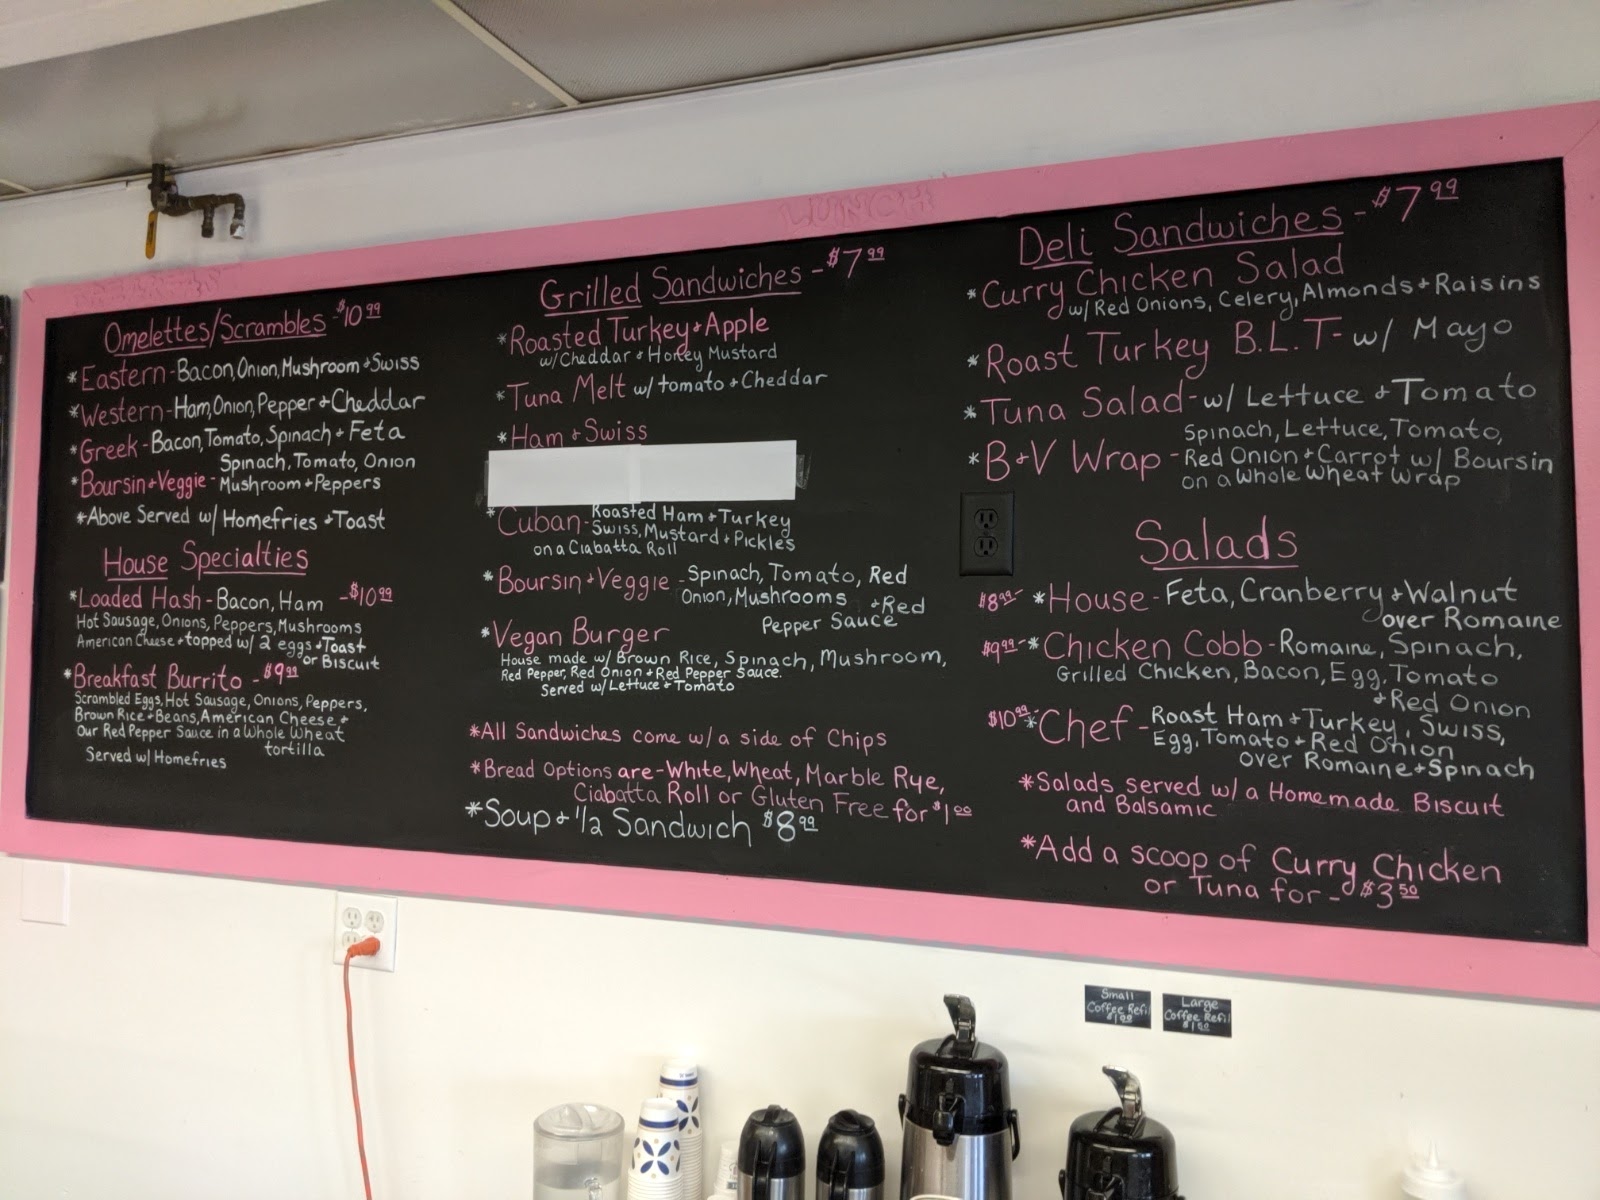 LUNCH
Omelettes/Scrambles - $10.99
*Eastern - Bacon, Onion, Mushroom + Swiss
*Western - Ham, Onion, Pepper + Cheddar
*Greek - Bacon, Tomato, Spinach + Feta
*Boursin + Veggie - Spinach, Tomato, Onion
Mushroom + Peppers
*Above Served w/ Homefries + Toast
House Specialties
*Loaded Hash - Bacon, Ham - $10.99
Hot Sausage, Onions, Peppers, Mushrooms
American Cheese + topped w/ 2 eggs + Toast
or Biscuit
*Breakfast Burrito - $9.99
Scrambled Eggs, Hot Sausage, Onions, Peppers,
Brown Rice + Beans, American Cheese +
Our Red Pepper Sauce in a Whole Wheat
tortilla
Served w/ Homefries
Grilled Sandwiches - $7.99
*Roasted Turkey + Apple
w/ Cheddar + Honey Mustard
*Tuna Melt w/ tomato + Cheddar
*Ham + Swiss
*Cuban - Roasted Ham + Turkey
Swiss, Mustard + Pickles
on a Ciabatta Roll
*Boursin + Veggie - Spinach, Tomato, Red
Onion, Mushrooms + Red
Pepper Sauce
*Vegan Burger
House made w/ Brown Rice, Spinach, Mushroom,
Red Pepper, Red Onion + Red Pepper Sauce.
Served w/ Lettuce + Tomato
*All Sandwiches come w/ a side of Chips
*Bread Options are - White, Wheat, Marble Rye,
Ciabatta Roll or Gluten Free for $1.00
*Soup + 1/2 Sandwich $8.99
Deli Sandwiches - $7.99
*Curry Chicken Salad
w/ Red Onions, Celery, Almonds + Raisins
*Roast Turkey B.L.T - w/ Mayo
*Tuna Salad - w/ Lettuce + Tomato
*B+V Wrap - Spinach, Lettuce, Tomato,
Red Onion + Carrot w/ Boursin
on a Whole Wheat Wrap
Salads
$8.99 - *House - Feta, Cranberry + Walnut
over Romaine
$9.99 - *Chicken Cobb - Romaine, Spinach,
Grilled Chicken, Bacon, Egg, Tomato
+ Red Onion
$10.99 - *Chef - Roast Ham + Turkey, Swiss,
Egg, Tomato + Red Onion
over Romaine + Spinach
*Salads served w/ a Homemade Biscuit
and Balsamic
*Add a scoop of Curry Chicken
or Tuna for - $3.50
Small
Coffee Refil
Large
Coffee Refil